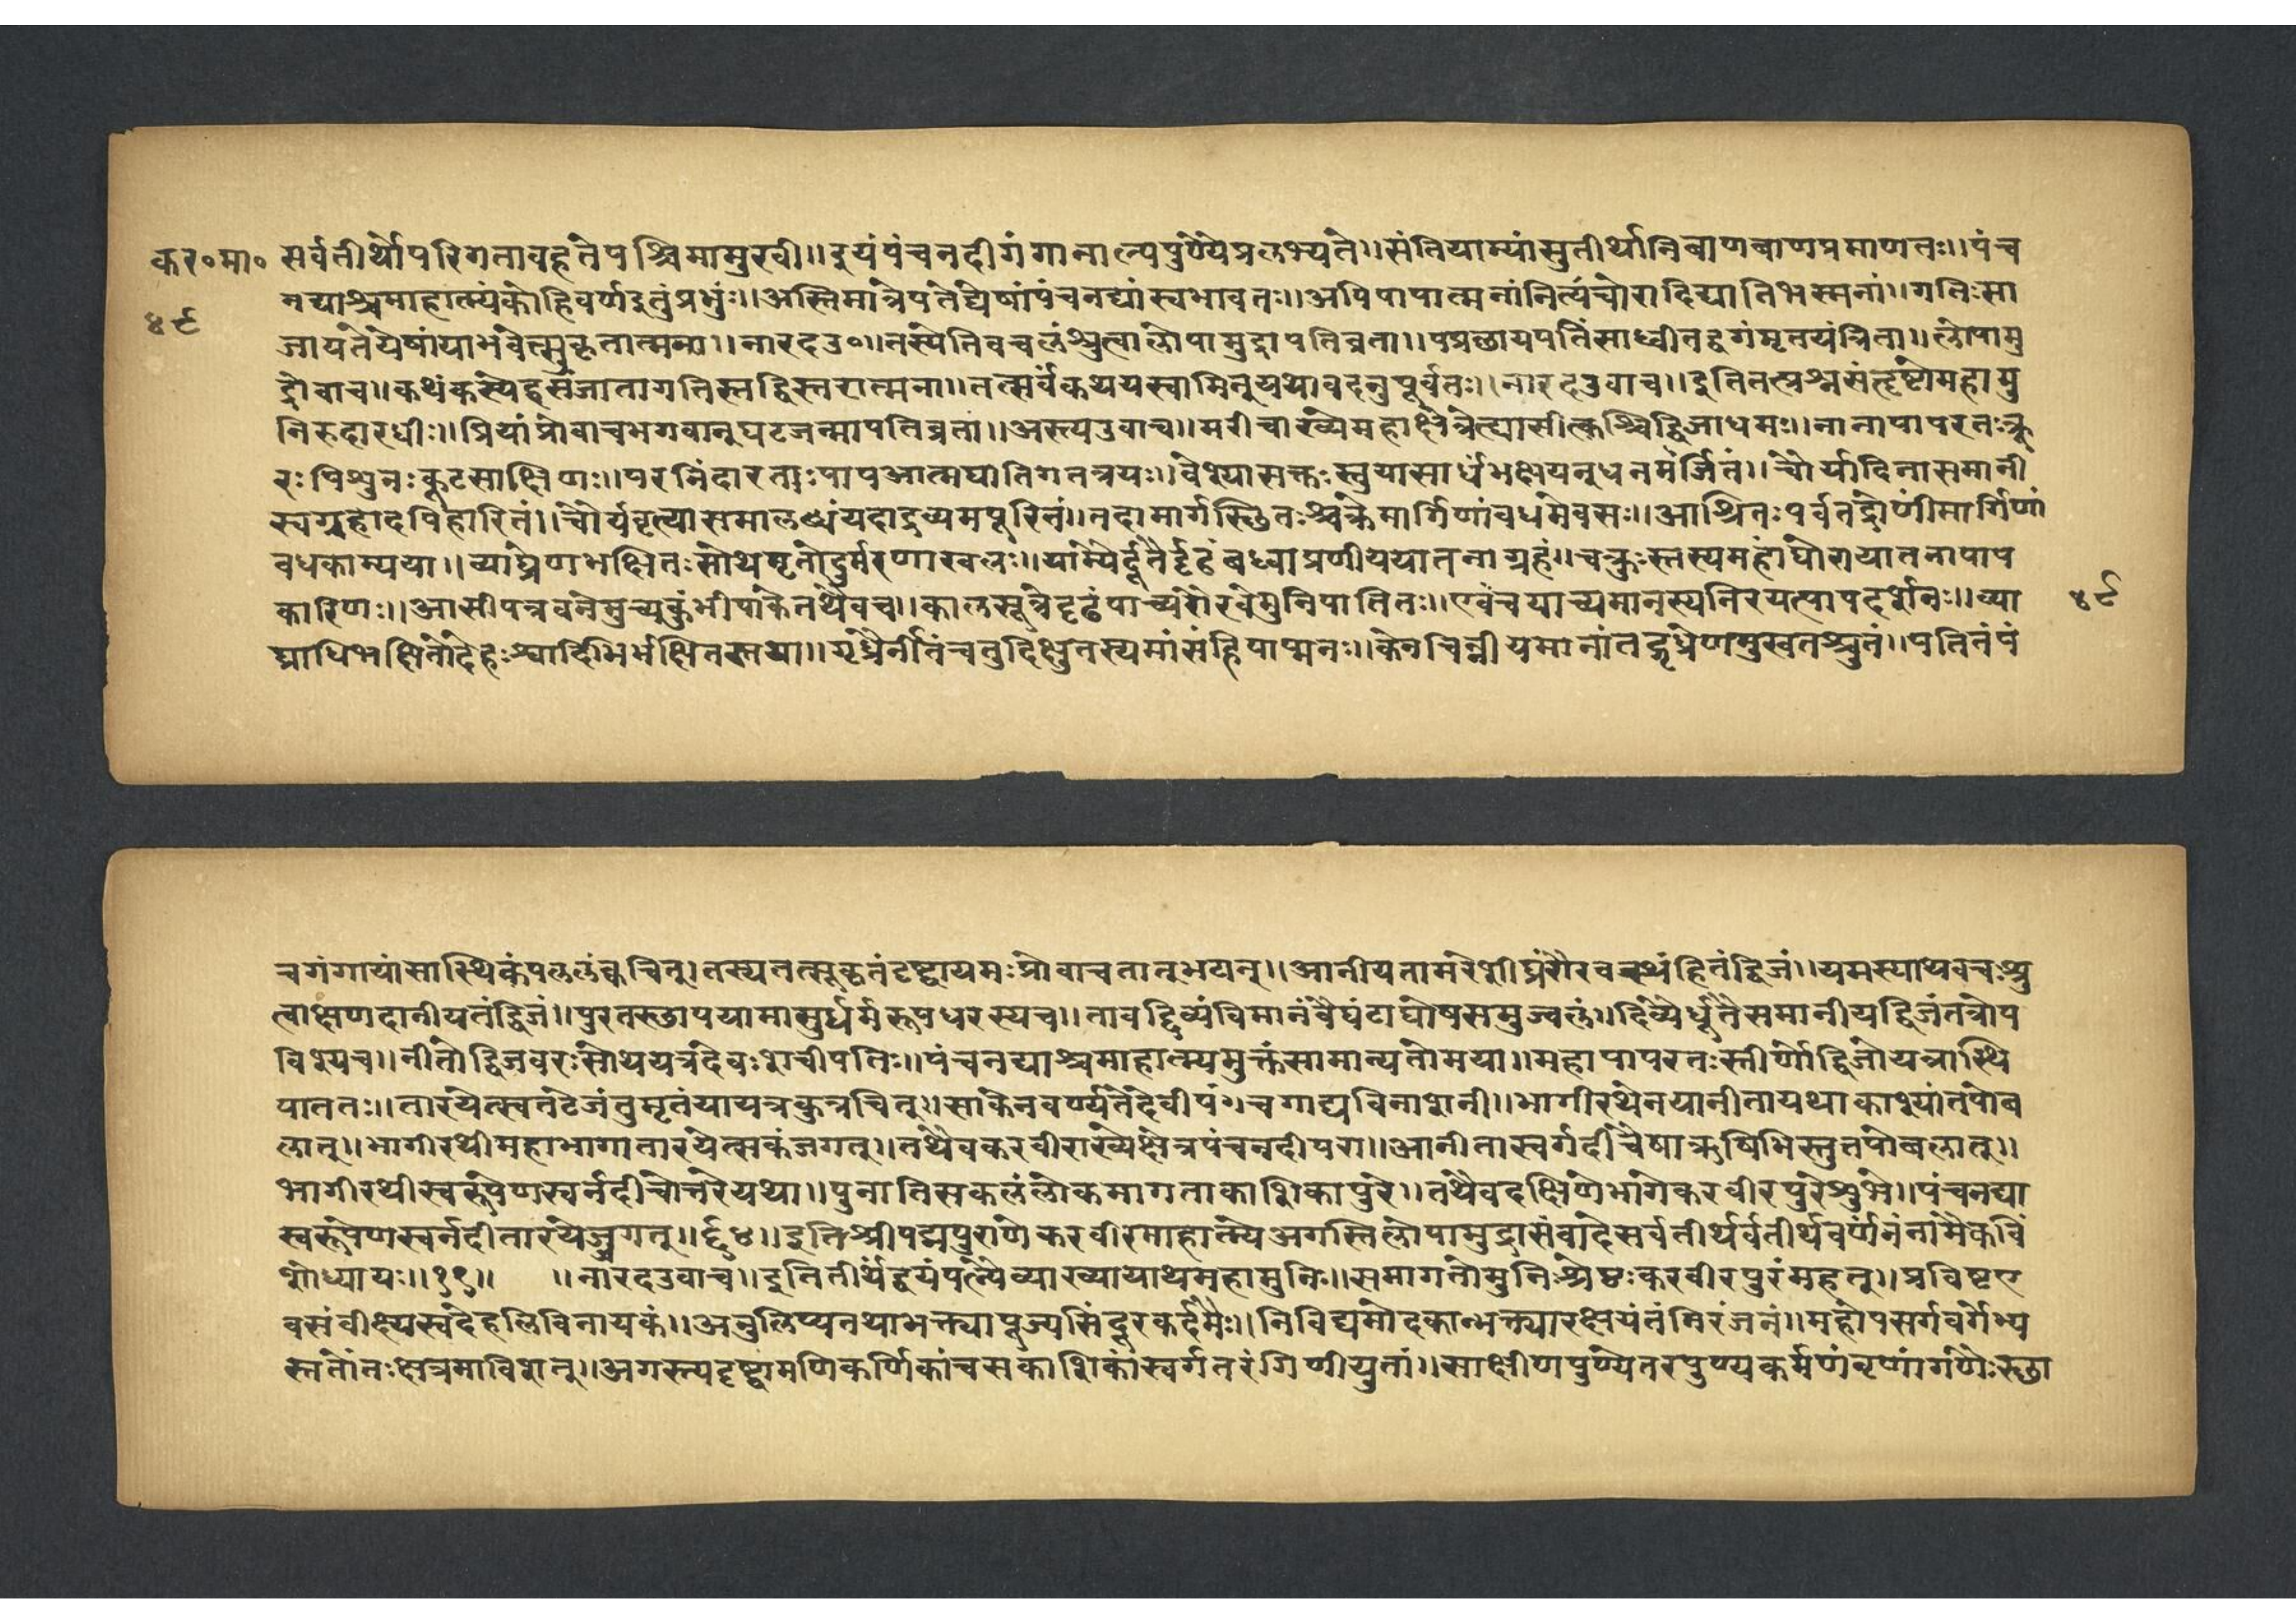 कर॰मा॰ सर्वतीर्थोपरिगतावहतेपश्चिमामुखी॥इयंपंचनदीगंगानाल्पपुण्येप्रलभ्यते॥संतियाम्यांसुतीर्थानिबाणबाणप्रमाणतः॥पंच
४९ नद्याश्चमाहात्म्यंकोहिवर्णइतुंप्रभुः॥अस्तिमात्रेपतेद्येषांपंचनद्यांस्वभावतः॥अपिपापात्मनांनित्यंचोरादिद्यातिभस्मनां॥गतिःसा
जायतेयेषांयाभवेत्सुकृतात्मना॥नारदउ॰॥तस्येतिवचलंश्रुत्वालोपामुद्रापतिव्रता॥पप्रछायपतिंसाध्वीतद्वगंमृतयंत्रिता॥लोपामु
द्रोवाच॥कथंकस्येहसंजातागतिस्तद्विस्तरात्मना॥तत्सर्वंकथयस्वामिन्यथावदनुपूर्वतः॥नारदउवाच॥इतितत्प्रश्नसंतृष्टोमहामु
निरुदारधीः॥प्रियांप्रोवाचभगवान्घटजन्मापतिव्रतां॥अस्त्यउवाच॥मरीचाख्येमहाक्षेत्रेत्द्यासीत्कश्चिद्विजाधमः॥नानापापरतःक्रू
रःपिशुनःकूटसाक्षिणः॥परनिंदारताःपापआत्मघातिगतत्रयः॥वेश्यासक्तःस्तुयासार्धंभक्षयन्धनमर्जितं॥चौर्यादिनासमानी
स्वगृहादविहारितं॥चौर्यवृत्यासमालण्ध्यंयदाद्रव्यमपूरितं॥तदामार्गस्छितःश्चक्रेमार्गिणांवधमेवसः॥आश्रितःपर्वतद्रोणींमार्गिणां
वधकाम्यया॥व्याघ्रेणभक्षितःसोथमृतोदुर्मरणाखलः॥याम्येर्दूतैर्दृढंबध्वाप्रणीययातनाग्रहं॥चक्रुःस्तस्यमहांघोरायातनापाप
कारिणः॥आसीपत्रवनेमुच्युकुंभीपाकेतथैवच॥कालसूत्रेदृढंपाच्यरौरवेमुनिपातितः॥एवंचयाच्यमानस्यनिरयत्पापदर्शनः॥व्या ४९
घ्राधिभक्षितोदेहःश्वादिभिर्भक्षितस्तथा॥गृध्रैर्नीतंचतुदिक्षुतस्यमांसंहिपाप्मनः॥केनचिन्नीयमानांतद्गृध्रेणमुखतश्चुतं॥पतितंपं
चगंगायांसास्थिकंपललंक्वचित्।तस्यतत्सूकृतंदृष्ट्वायमःप्रोवाचतान्भटान्॥आनीयतामरेशीघ्रंरौरवस्थंहितंद्विजं॥यमस्याथवचःश्रु
त्वाक्षणदानीयतंद्विजं॥पुरतस्छापयामासुर्धर्मरूपधरस्यच॥तावद्दिव्यंविमानंवैघंटाघोषसमुज्वलं॥दिव्येर्धूतैसमानीयद्विजंतत्रोप
विश्यच॥नीतोद्विजवरःसोथयत्रदेवःशचीपतिः॥पंचनद्याश्चमाहात्म्यमुक्तंसामान्यतोमया॥महापापरतःस्तीर्णोद्विजोयत्रास्थि
पाततः॥तारयेत्स्वतटेजंतुमृतंयायत्रकुत्रचित्॥साकेनवर्ण्यतेदेवीपंचगाद्यविनाशनी॥भागीरथेनयानीतायथाकाश्यांतपोब
लात्॥भागीरथीमहाभागातारयेत्सकंजगत्॥तथैवकरवीराख्येक्षेत्रपंचनदीपरा॥आनीतास्वर्गदींचैषाऋषिभिस्तुतपोबलात्॥
भागीरथीस्वरूपेणस्वर्नदीचोत्तरेयथा॥पुनातिसकलंलोकमागताकाशिकापुरे॥तथैवदक्षिणेभागेकरवीरपुरेशुभे॥पंचनद्या
स्वरूपेणस्वर्नदीतारयेज्जगत्॥६४॥इतिश्रीपद्मपुराणेकरवीरमाहात्म्येअगस्तिलोपामुद्रासंवादेसर्वतीर्थर्वतीर्थवर्णनंनामैकविं
शोध्यायः॥२१॥ ॥नारदउवाच॥इतितीर्थेद्वयंपत्न्यैव्याख्यायाथमहामुनिः॥समागतोमुनिःश्रेष्ठःकरवीरपुरंमहत्॥प्रविष्टए
वसंवीक्ष्यस्वदेहलिविनायकं॥अनुलिप्यतथाभक्त्यापूज्यसिंदूरकर्दमैः॥निविद्यमोदकान्भक्त्यारक्षयंतंनिरंजनं॥महोपसर्गवर्गेभ्य
स्ततोंतःक्षेत्रमाविशत्॥अगस्त्यदृष्ट्वामणिकर्णिकांचसकाशिकांस्वर्गतरंगिणीयुतां॥साक्षीणपुण्येतरपुण्यकर्मणंनृणांगणैःस्छा